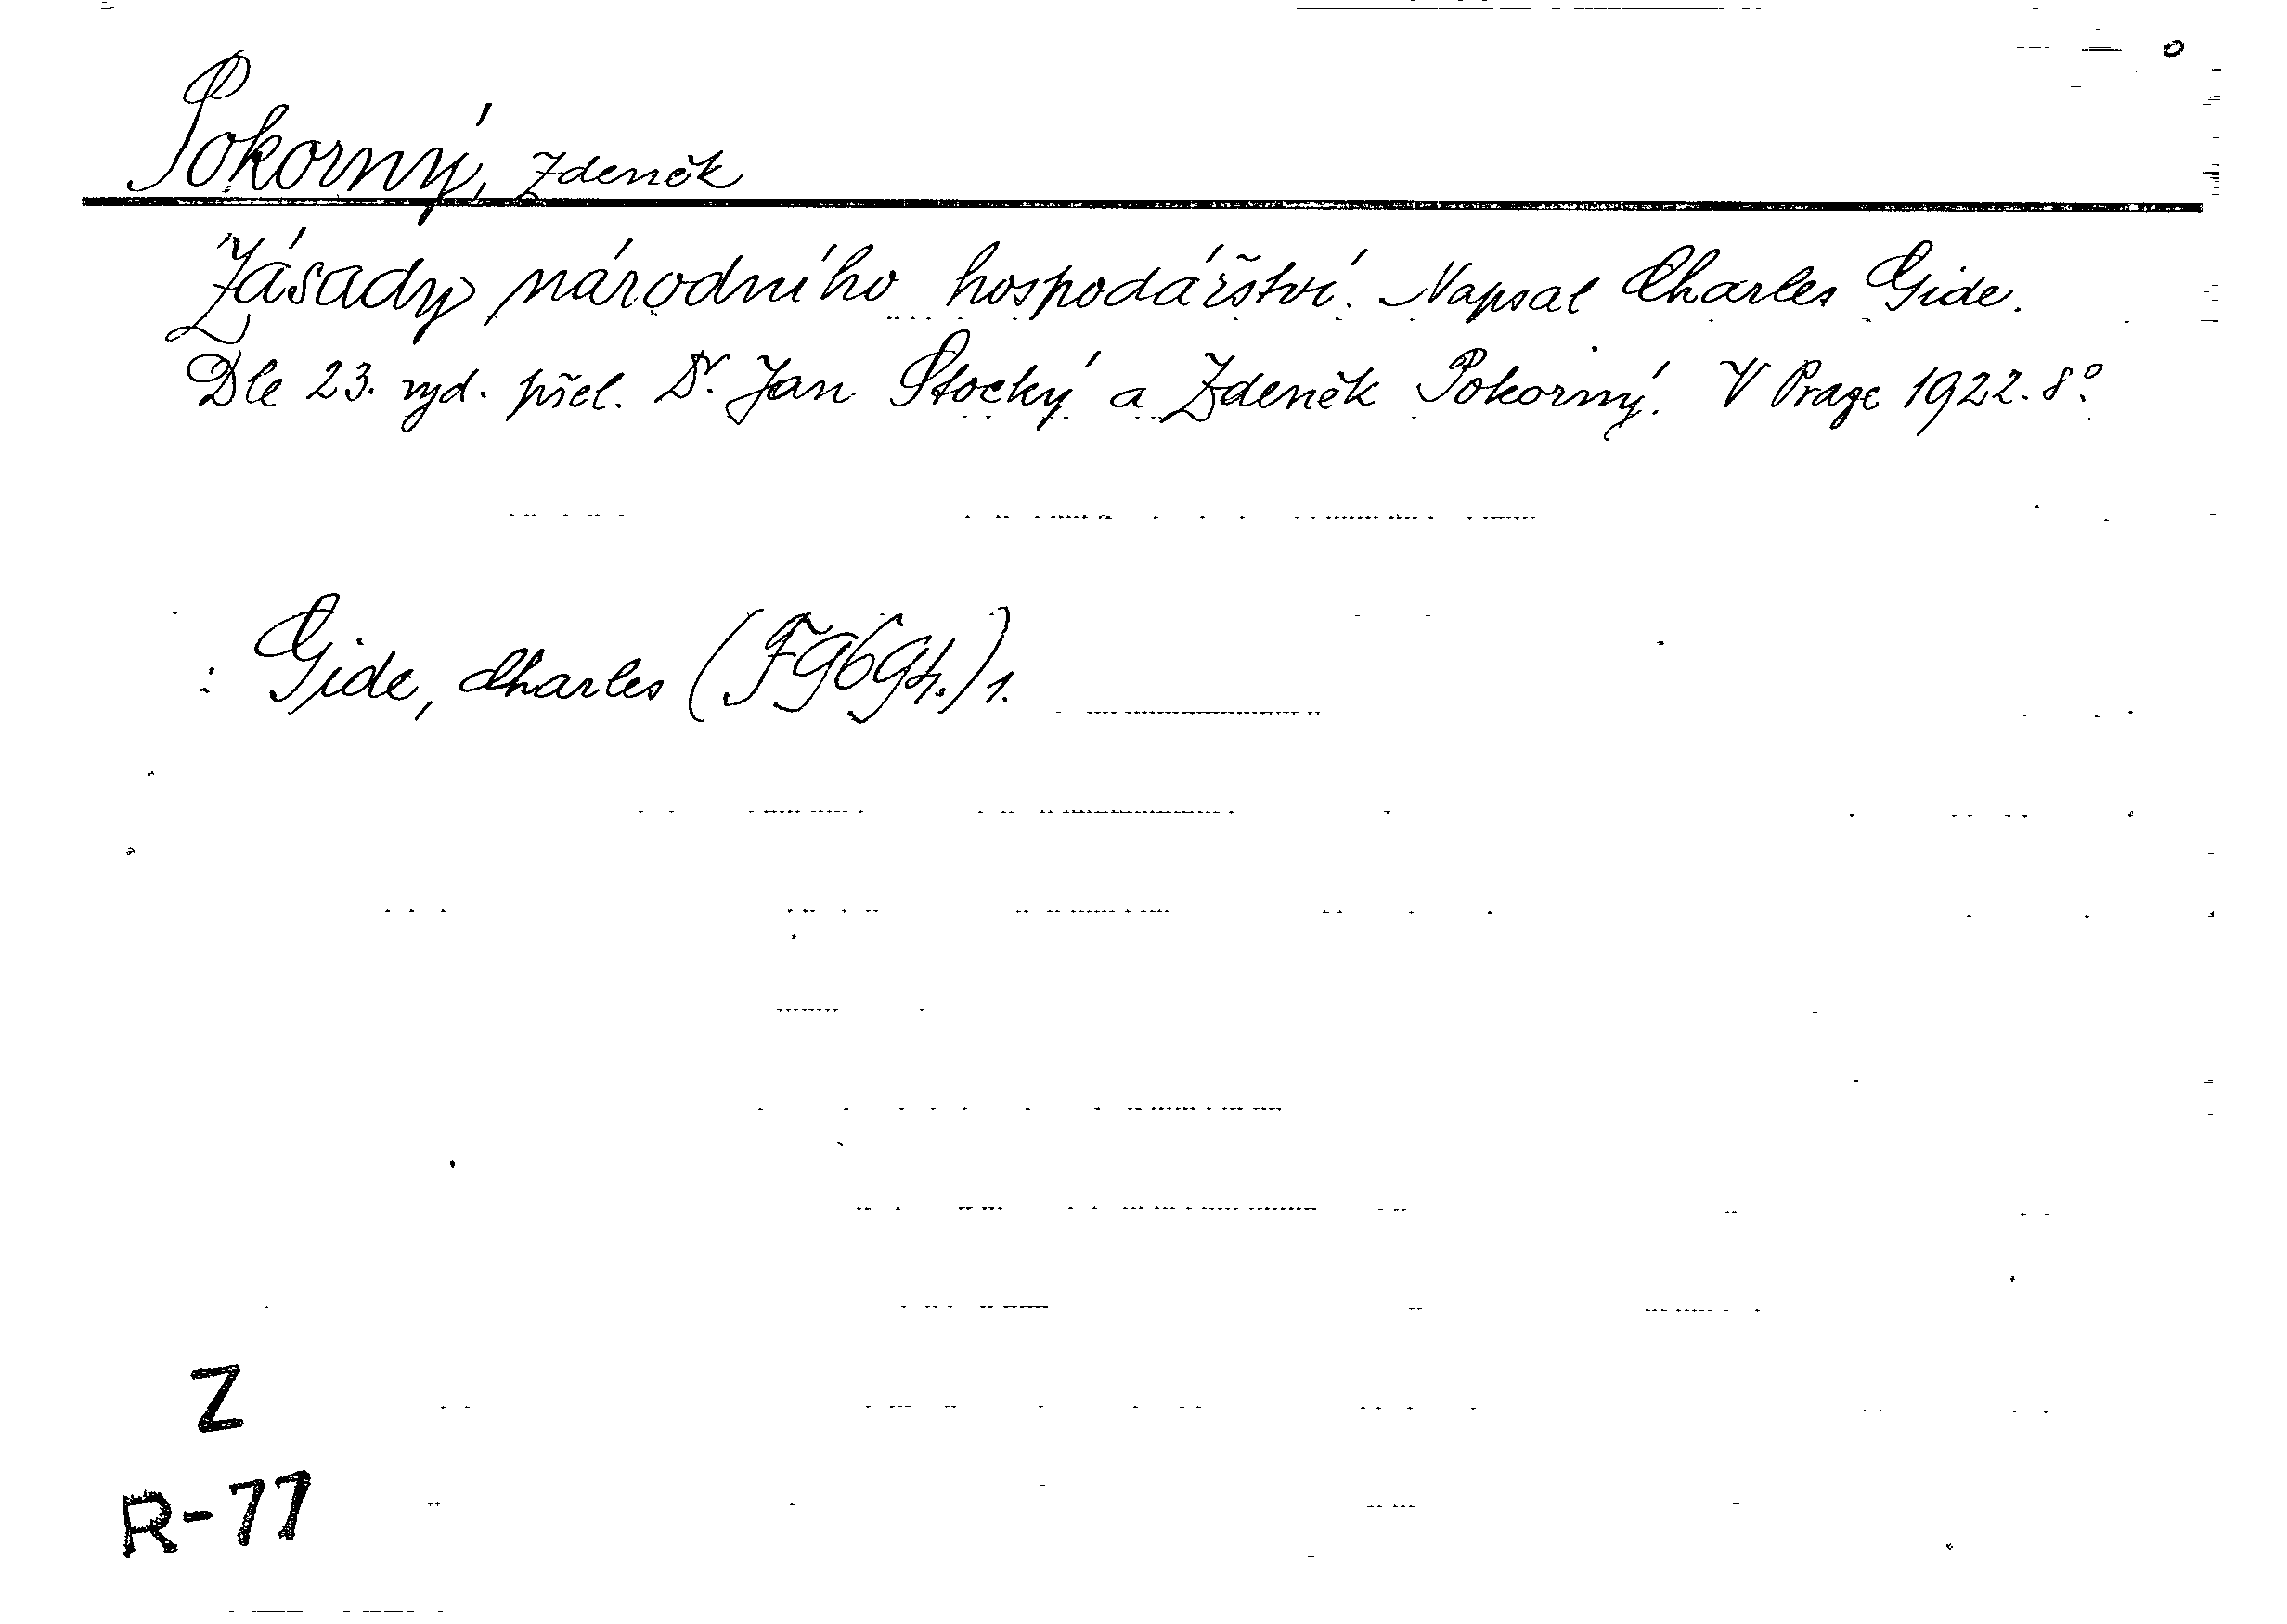 Pokorný, Zdeněk
Zásady národního hospodářství. Napsal Charles Gide.
Dle 23. vyd. přel. Dr. Jan Stocký a Zdeněk Pokorný. V Praze 1922. 8°.
: Gide, Charles (F969t.) 1.
Z
R-77